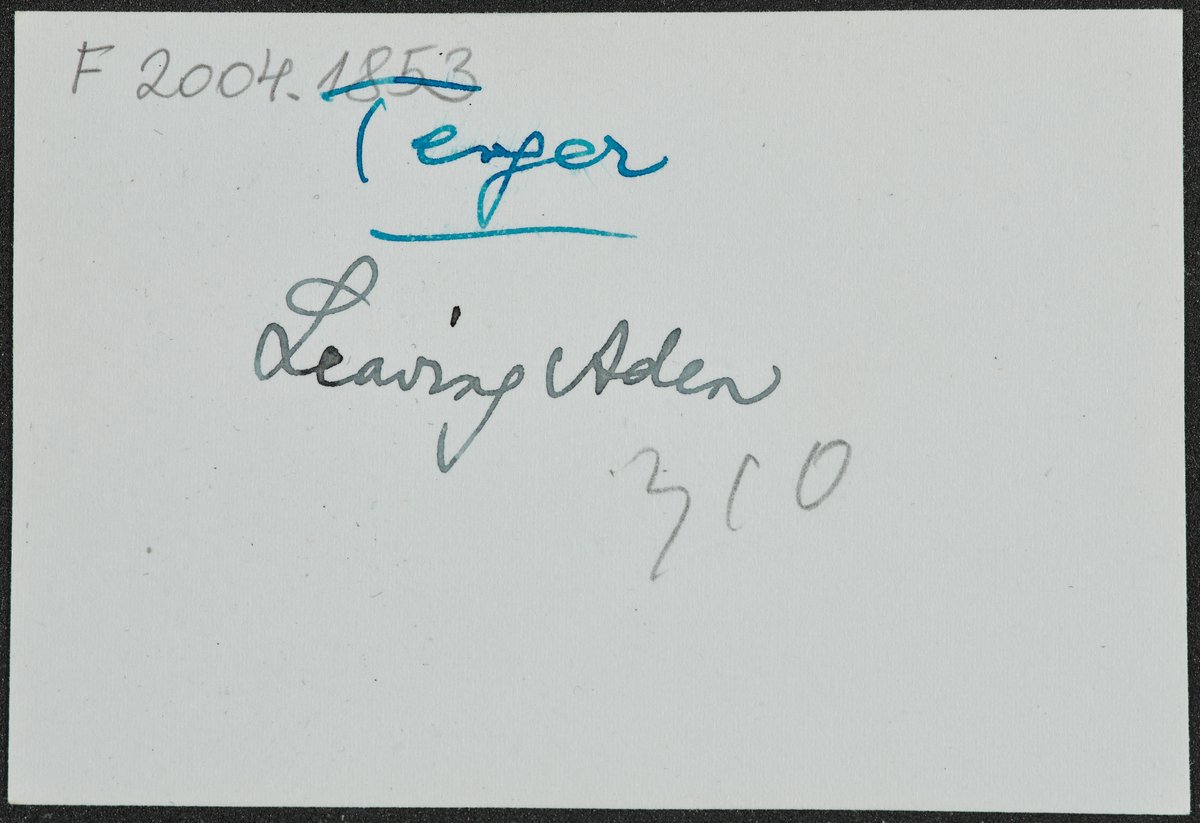 F 2004.1853
Tenger
Leaving Aden
310